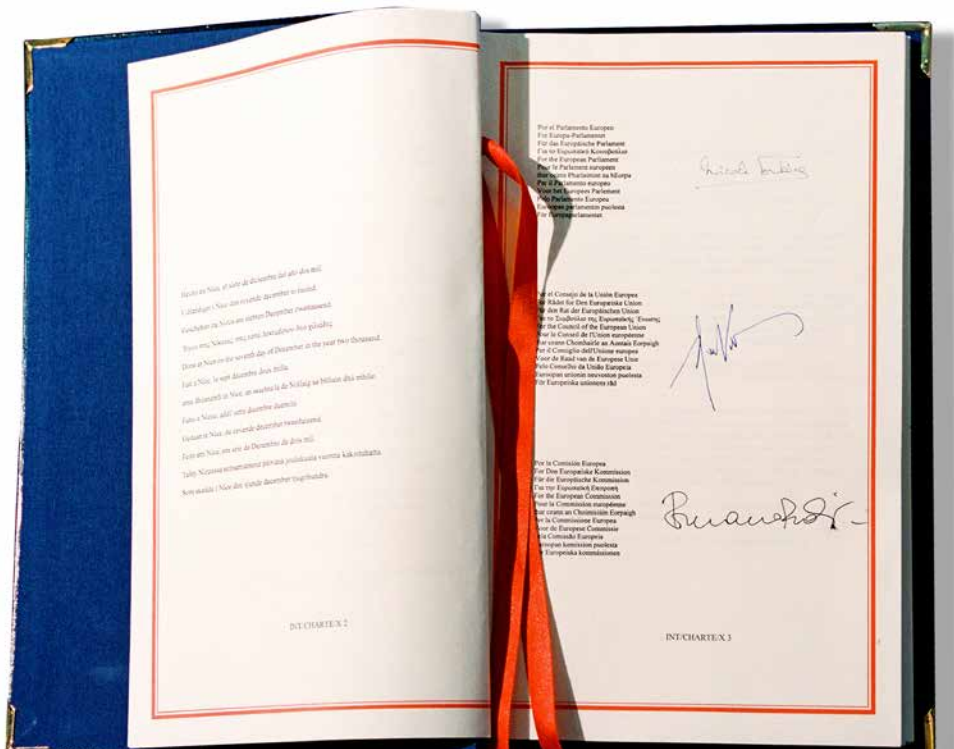 Hecho en Niza, el siete de diciembre del año dos mil.
Udfærdiget i Nice den syvende december to tusind.
Geschehen zu Nizza am siebten Dezember zweitausend.
Done at Nice on the seventh day of December in the year two thousand.
Fait à Nice, le sept décembre deux mille.
Arna dhéanamh in Nice, an seachtú lá de Nollaig sa bhliain dhá mhíle.
Fatto a Nizza, addì sette dicembre duemila.
Gedaan te Nice, de zevende december tweeduizend.
Feito em Nice, em sete de Dezembro de dois mil.
Tehty Nizzassa seitsemäntenä päivänä joulukuuta vuonna kaksituhatta.
Som skedde i Nice den sjunde december tjugohundra.
INT/CHARTE/X 2
Por el Parlamento Europeo
For Europa-Parlamentet
Für das Europäische Parlament
Για το Ευρωπαϊκό Κοινοβούλιο
For the European Parliament
Pour le Parlement européen
thar ceann Pharlaimint na hEorpa
Per il Parlamento europeo
Voor het Europees Parlement
Pelo Parlamento Europeu
Euroopan parlamentin puolesta
För Europaparlamentet
Por el Consejo de la Unión Europea
For Rådet for Den Europæiske Union
Für den Rat der Europäischen Union
Για το Συμβούλιο της Ευρωπαϊκής Ένωσης
For the Council of the European Union
Pour le Conseil de l'Union européenne
thar ceann Chomhairle an Aontais Eorpaigh
Per il Consiglio dell'Unione europea
Voor de Raad van de Europese Unie
Pelo Conselho da União Europeia
Euroopan unionin neuvoston puolesta
För Europeiska unionens råd
Por la Comisión Europea
For Den Europæiske Kommission
Für die Europäische Kommission
Για την Ευρωπαϊκή Επιτροπή
For the European Commission
Pour la Commission européenne
thar ceann an Choimisiúin Eorpaigh
Per la Commissione Europea
Voor de Europese Commissie
Pela Comissão Europeia
Euroopan komission puolesta
För Europeiska kommissionen
INT/CHARTE/X 3